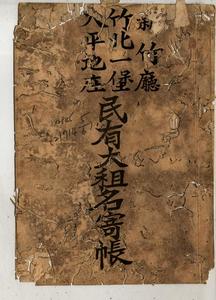 新竹廳
竹北一堡
八平地庄
民有大租名寄帳